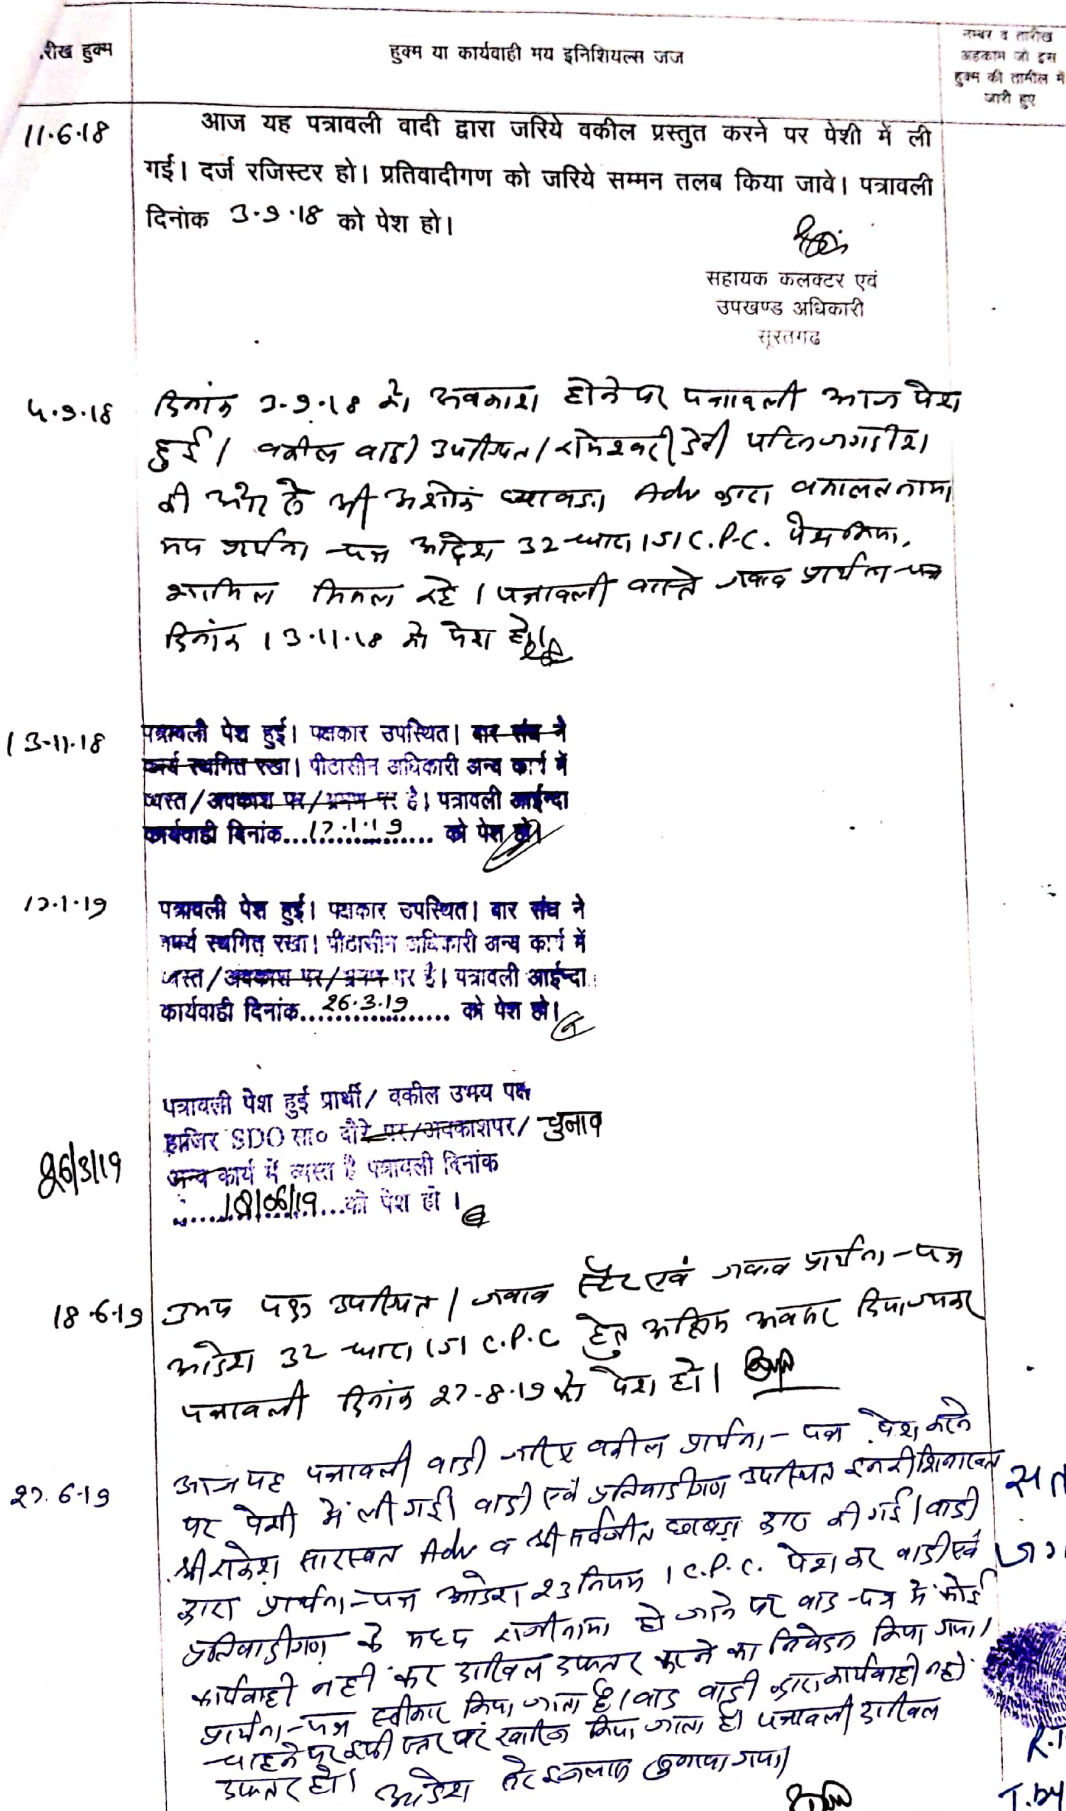 रीख हुक्म
हुक्म या कार्यवाही मय इनिशियल्स जज
नम्बर व तारीख
अहकाम जो इस
हुक्म की तामील में
जारी हुए
11.6.18
आज यह पत्रावली वादी द्वारा जरिये वकील प्रस्तुत करने पर पेशी में ली
गई। दर्ज रजिस्टर हो। प्रतिवादीगण को जरिये सम्मन तलब किया जावे। पत्रावली
दिनांक 3.9.18 को पेश हो।
सहायक कलक्टर एवं
उपखण्ड अधिकारी
सूरतगढ
4.9.18
दिनांक 3.9.18 को अवकाश होने पर पत्रावली आज पेश
हुई। वकील वादी उपस्थित। रामेश्वरी देवी पत्नि जगदीश
की ओर से श्री अशोक Adv द्वारा वकालतनामा
मय प्रार्थना-पत्र आदेश 32 धारा 151 C.P.C. पेश किया,
शामिल मिसल रहे। पत्रावली वास्ते जवाब प्रार्थना-पत्र
दिनांक 13.11.18 को पेश हो।
13-11-18
पत्रावली पेश हुई। पक्षकार उपस्थित। बार संघ ने
कार्य स्थगित रखा। पीठासीन अधिकारी अन्य कार्य में
व्यस्त/अवकाश पर/भ्रमण पर है। पत्रावली आईन्दा
कार्यवाही दिनांक...17.1.19...... को पेश हो।
17.1.19
पत्रावली पेश हुई। पक्षकार उपस्थित। बार संघ ने
कार्य स्थगित रखा। पीठासीन अधिकारी अन्य कार्य में
व्यस्त/अवकाश पर/भ्रमण पर है। पत्रावली आईन्दा
कार्यवाही दिनांक...26.3.19...... को पेश हो।
26/3/19
पत्रावली पेश हुई प्रार्थी/ वकील उभय पक्ष
हाजिर SDO सा० दौरे पर/अवकाशपर/ चुनाव
अन्य कार्य में व्यस्त है पत्रावली दिनांक
......18/06/19...को पेश हो।
18-6-19
उभय पक्ष उपस्थित। जवाब स्टे एवं जवाब प्रार्थना-पत्र
आदेश 32 धारा 151 C.P.C हेतु अन्तिम अवसर दिया जाकर
पत्रावली दिनांक 27-8-19 को पेश हो।
27.6-19
आज यह पत्रावली वादी जरिए वकील प्रार्थना-पत्र पेश करने
पर पेशी में ली गई। वादी एवं प्रतिवादीगण उपस्थित इनकी शिनाख्त
श्री राकेश सारस्वत Adv व श्री सर्वजीत द्वारा की गई। वादी
द्वारा प्रार्थना-पत्र आदेश 23 नियम 1 C.P.C. पेश कर वादी एवं
प्रतिवादीगण के मध्य राजीनामा हो जाने पर वाद-पत्र में कोई
कार्यवाही नहीं कर दाखिल दफ्तर करने का निवेदन किया गया।
प्रार्थना-पत्र स्वीकार किया जाता है। वाद वादी द्वारा कार्यवाही नहीं
चाहने पर इसी स्तर पर खारिज किया जाता है। पत्रावली दाखिल
दफ्तर हो। आदेश सरे इजलास सुनाया गया।